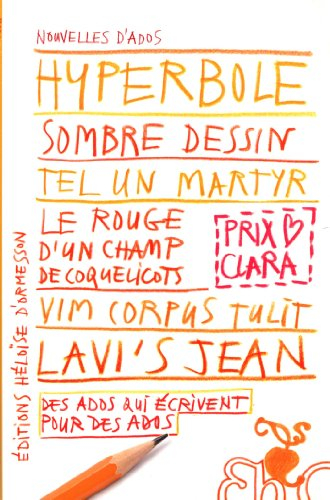 NOUVELLES D'ADOS
HYPERBOLE
SOMBRE DESSIN
TEL UN MARTYR
LE ROUGE
D'UN CHAMP
DE COQUELICOTS
PRIX
CLARA
VIM CORPUS TULIT
LAVI'S JEAN
DES ADOS QUI ÉCRIVENT
POUR DES ADOS
ÉDITIONS HÉLOÏSE D'ORMESSON
EHO